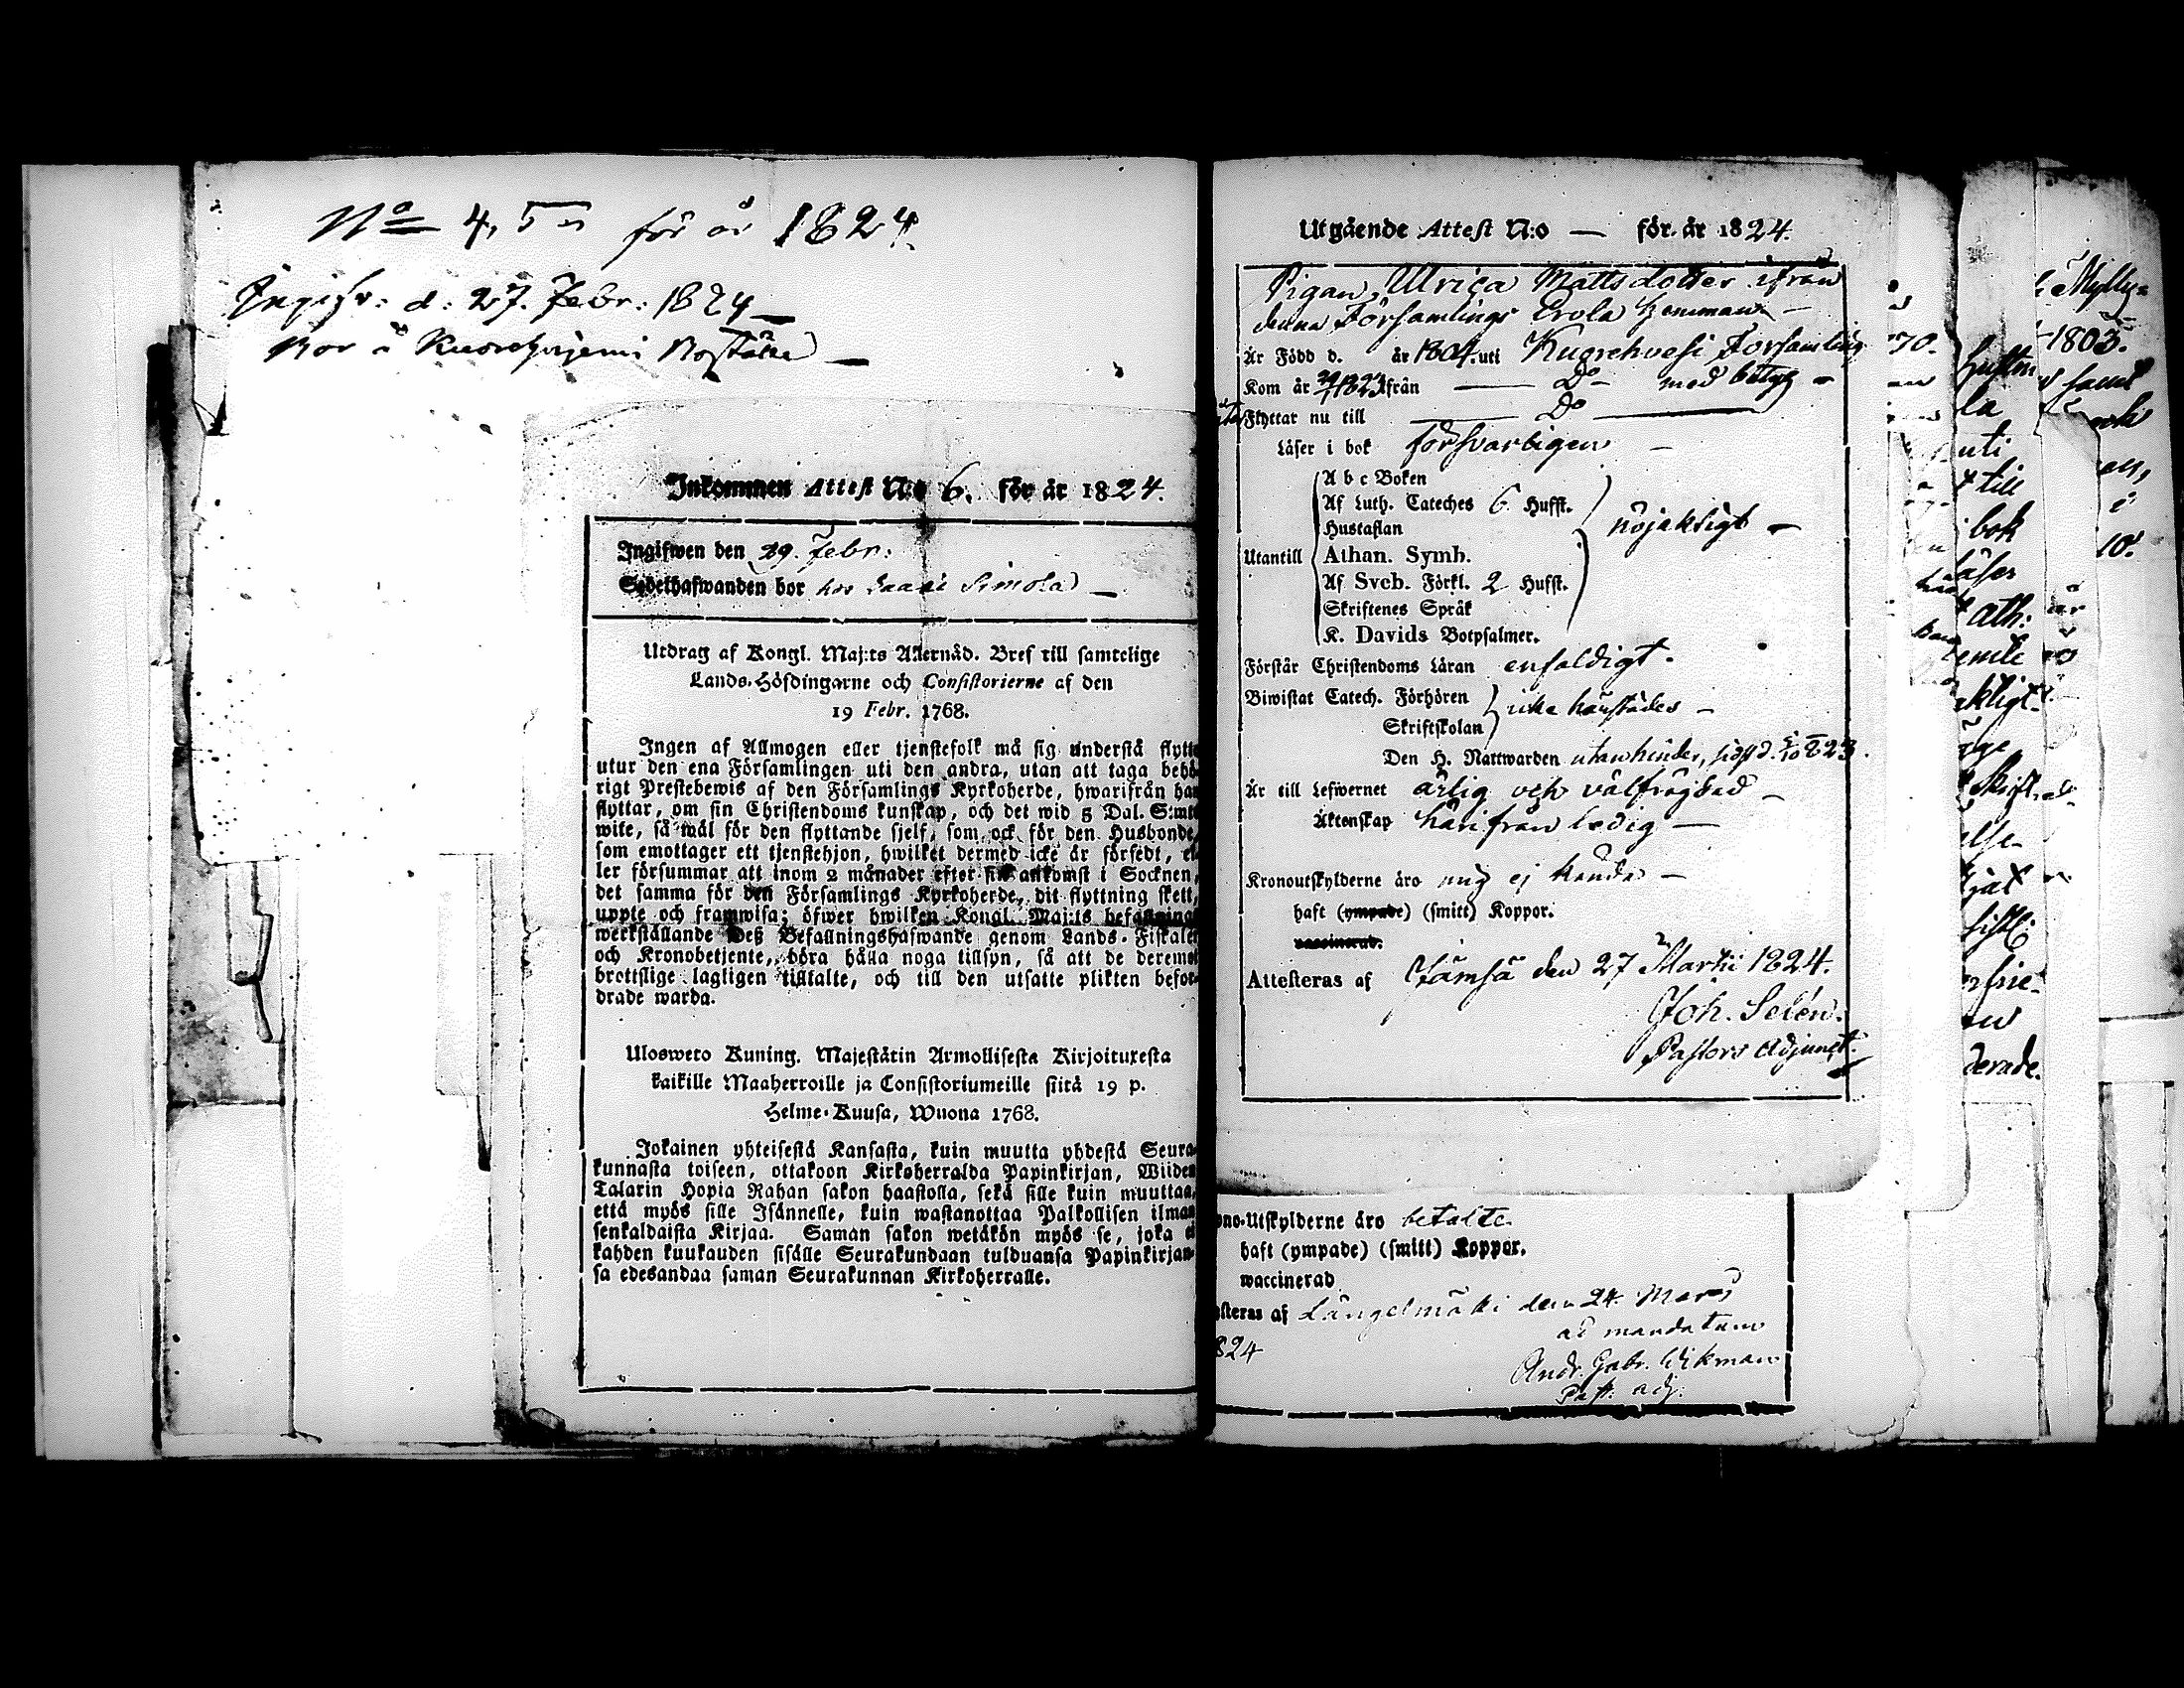 No 4, 5 för år 1824.
Ingifv: d: 27. Febr: 1824 —
Bor å Boställe —
Inkommen Attest N:o 6. för år 1824.
Ingifwen den 29. Febr:
Sedelhafwanden bor hos Simola —
Utdrag af Kongl. Maj:ts Allernåd. Bref till samtelige
Lands-Höfdingarne och Consistorierne af den
19 Febr. 1768.
Ingen af Allmogen eller tjenstefolk må sig understå flytt
utur den ena Församlingen uti den andra, utan att taga behö
rigt Prestebewis af den Församlings Kyrkoherde, hwarifrån han
flyttar, om sin Christendoms kunskap, och det wid 5 Dal. S:mt
wite, så wäl för den flyttande sjelf, som ock för den Husbonde,
som emottager ett tjenstehjon, hwilket dermed icke är försedt, el
ler försummar att inom 2 månader efter sin ankomst i Socknen,
det samma för den Församlings Kyrkoherde, dit flyttning skett,
uppte och framwisa; öfwer hwilken Kongl. Maj:ts befallning
werkställande Deß Befallningshafwande genom Lands-Fiskaler
och Kronobetjente, böra hålla noga tillsyn, så att de deremot
brottslige lagligen tilltalte, och till den utsatte plikten befor-
drade warda.
Ulosweto Kuning. Majestätin Armollisesta Kirjoituxesta
kaikille Maaherroille ja Consistoriumeille siitä 19 p.
Helme-Kuusa, Wuona 1768.
Jokainen yhteisestä Kansasta, kuin muutta yhdestä Seura-
kunnasta toiseen, ottakoon Kirkoherralda Papinkirjan, Wiiden
Talarin Hopia Rahan sakon haastolla, sekä sille kuin muuttaa,
että myös sille Isännelle, kuin wastanottaa Palkollisen ilman
senkaldaista Kirjaa. Saman sakon wetäkön myös se, joka ei
kahden kuukauden sisälle Seurakundaan tulduansa Papinkirjan-
sa edesandaa saman Seurakunnan Kirkoherralle.
Utgående Attest N:o — för år 1824.
Pigan Ulrica Mattsdotter ifrån
denna Församlings Erola hemman —
Är Född d. år 1804. uti Kuorehvesi Församling
Kom år 1823 ifrån — Do — med betyg —
Flyttar nu till — Do —
Läser i bok försvarligen —
A b c Boken
Af Luth. Cateches 6. Hufst.
Hustaflan
Utantill Athan. Symb. nöjaktigt —
Af Sveb. Förkl. 2 Hufst.
Skriftenes Språk
K. Davids Botpsalmer.
Förstår Christendoms Läran enfaldigt.
Biwistat Catech. Förhören
Skriftskolan icke härstädes —
Den H. Nattwarden utan hinder, sidst d. 5/10 823.
Är till Lefwernet ärlig och välfrägdad —
Äktenskap härifrån ledig —
Kronoutskylderne äro mig ej kända —
haft (ympade) (smitt) Koppor.
vaccinerad.
Attesteras af Jämsä den 27 Martii 1824.
Joh. Selén.
Pastors Adjunct.
ono-Utskylderne äro betalte
haft (ympade) (smitt) Koppor.
waccinerad
steras af Längelmäki den 24. Mars
824
ad mandatum
Andr. Gabr. Wikman
Past. adj.
70.
uti
till
bok
läser
ath:
aktigt.
derade.
Mylly=
1803.
samt
10.